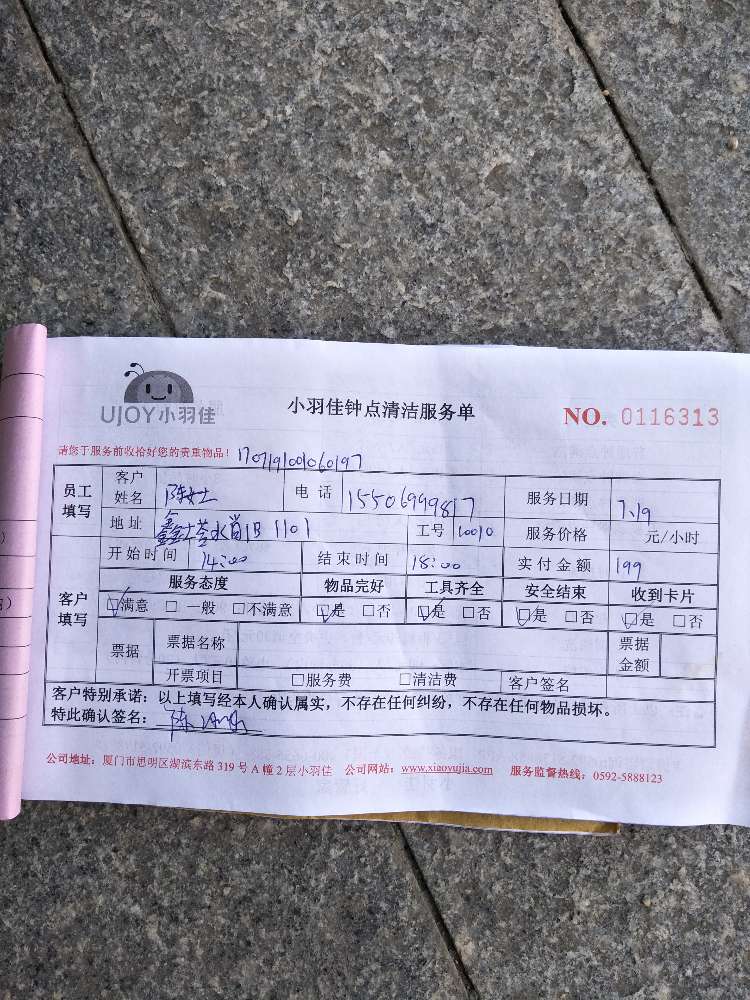 UJOY小羽佳
小羽佳钟点清洁服务单
NO. 0116313
请您于服务前收拾好您的贵重物品！ 170719100060197
员工填写 客户姓名 陈女士 电话 15506999817 服务日期 7.19
地址 1101 工号 10010 服务价格 元/小时
客户填写 开始时间 14:00 结束时间 18:00 实付金额 199
服务态度 物品完好 工具齐全 安全结束 收到卡片
☑满意 □一般 □不满意 ☑是 □否 ☑是 □否 ☑是 □否 ☑是 □否
票据 票据名称 票据金额
开票项目 □服务费 □清洁费 客户签名
客户特别承诺：以上填写经本人确认属实，不存在任何纠纷，不存在任何物品损坏。
特此确认签名： 陈
公司地址：厦门市思明区湖滨东路 319 号 A 幢 2 层小羽佳 公司网站：www.xiaoyujia.com 服务监督热线：0592-5888123